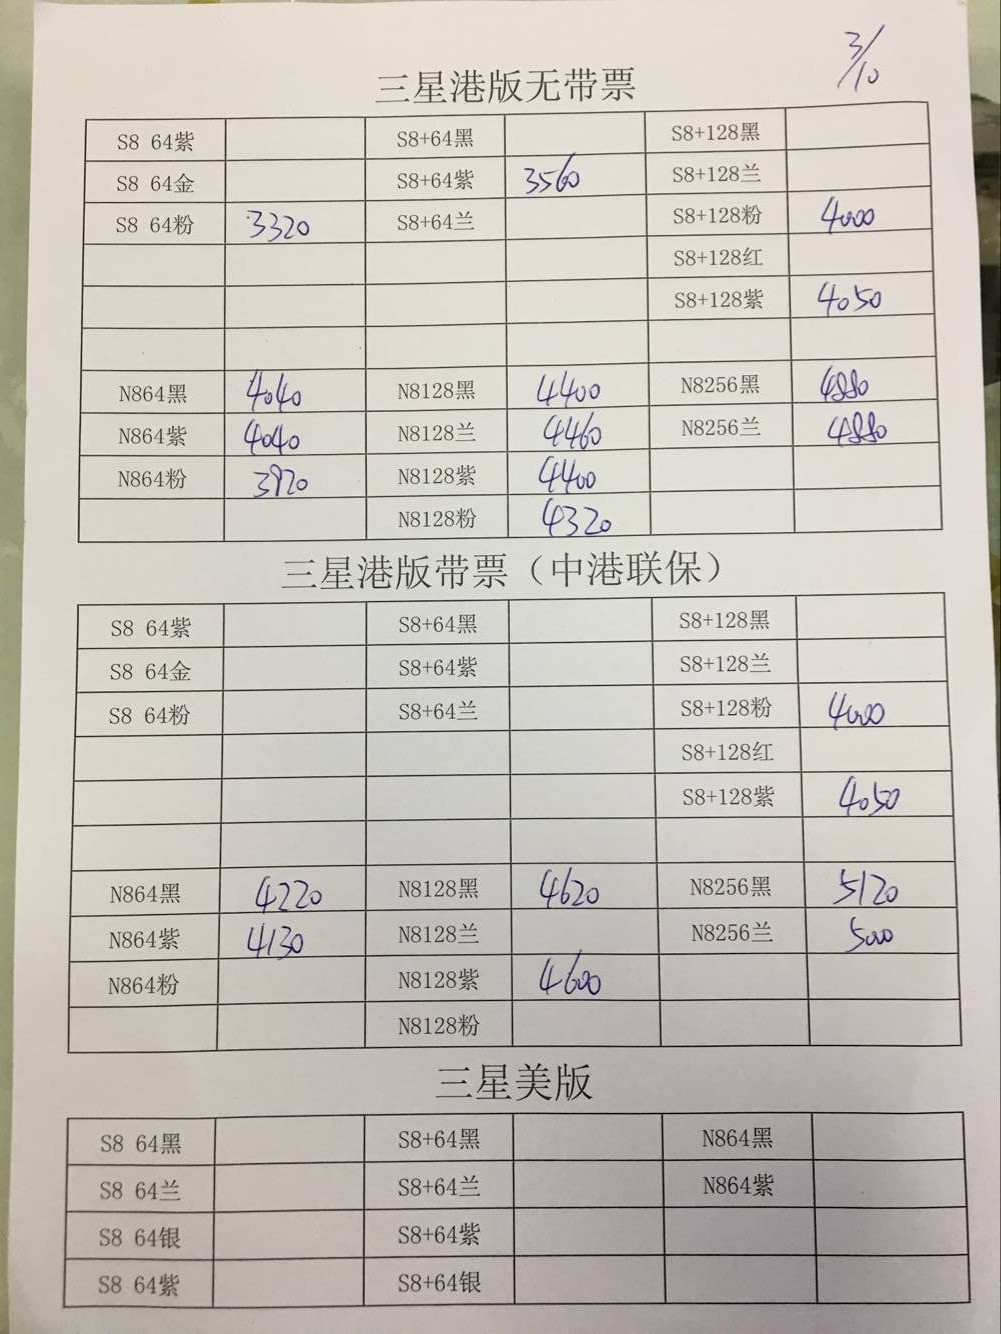 3/10
三星港版无带票
S8 64紫 S8+64黑 S8+128黑
S8 64金 S8+64紫 3560 S8+128兰
S8 64粉 3320 S8+64兰 S8+128粉 4000
S8+128红
S8+128紫 4050
N864黑 4040 N8128黑 4400 N8256黑 4880
N864紫 4040 N8128兰 4460 N8256兰 4880
N864粉 3920 N8128紫 4400
N8128粉 4320
三星港版带票（中港联保）
S8 64紫 S8+64黑 S8+128黑
S8 64金 S8+64紫 S8+128兰
S8 64粉 S8+64兰 S8+128粉 4000
S8+128红
S8+128紫 4050
N864黑 4220 N8128黑 4620 N8256黑 5120
N864紫 4130 N8128兰 N8256兰 5000
N864粉 N8128紫 4600
N8128粉
三星美版
S8 64黑 S8+64黑 N864黑
S8 64兰 S8+64兰 N864紫
S8 64银 S8+64紫
S8 64紫 S8+64银